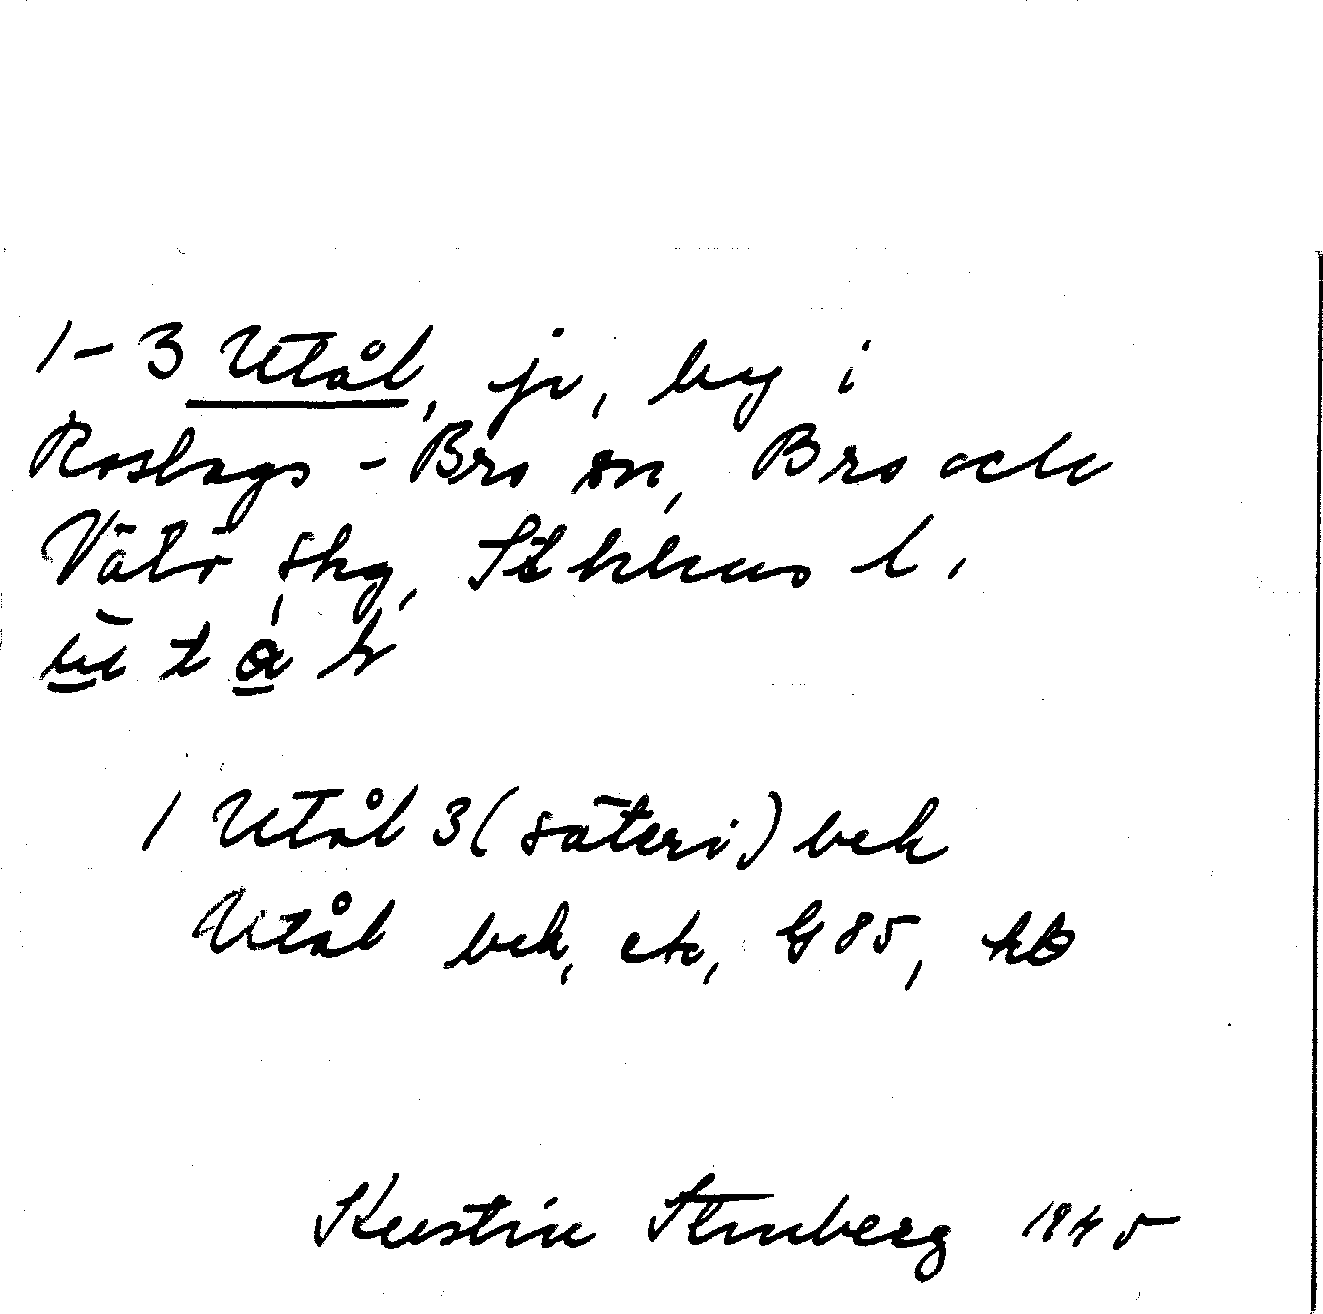 1-3 Utål, jr, by i
Roslags-Bro sn, Bro och
Vätö skg, Stkhlms l.
1 Utål 3 (säteri) bek
Utål bek, etc, G 85, kB
Kerstin Stenberg 1945